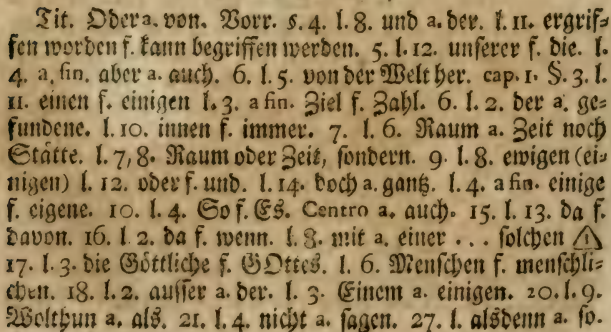 Tit. Ober a. von. Vorr. s. 4. l. 8. und a. der. l. 11. ergrif⸗
fen worden f. kann begriffen werden. 5. l. 12. unserer f. die. l.
4. a. fin. aber a. auch. 6. l. 5. von der Welt her. cap. 1. §. 3. l.
11. einen f. einigen l. 3. a fin. Ziel f. Zahl. 6. l. 2. der a. ge⸗
fundene. l. 10. innen f. immer. 7. l. 6. Raum a. Zeit noch
Stätte. l. 7, 8. Raum oder Zeit, sondern. 9. l. 8. ewigen (ei⸗
nigen) l. 12. oder f. und. l. 14. doch a. gantz. l. 4. a fin. einige
f. eigene. 10. l. 4. So f. Es. Centro a. auch. 15. l. 13. da f.
davon. 16. l. 2. da f. wenn. l. 8. mit a. einer ... solchen
17. l. 3. die Göttliche f. GOttes. l. 6. Menschen f. menschli⸗
chen. 18. l. 2. ausser a. der. l. 3. Einem a. einigen. 20. l. 9.
Wolthun a. als. 21. l. 4. nicht a. sagen. 27. l. alsdenn a. so.